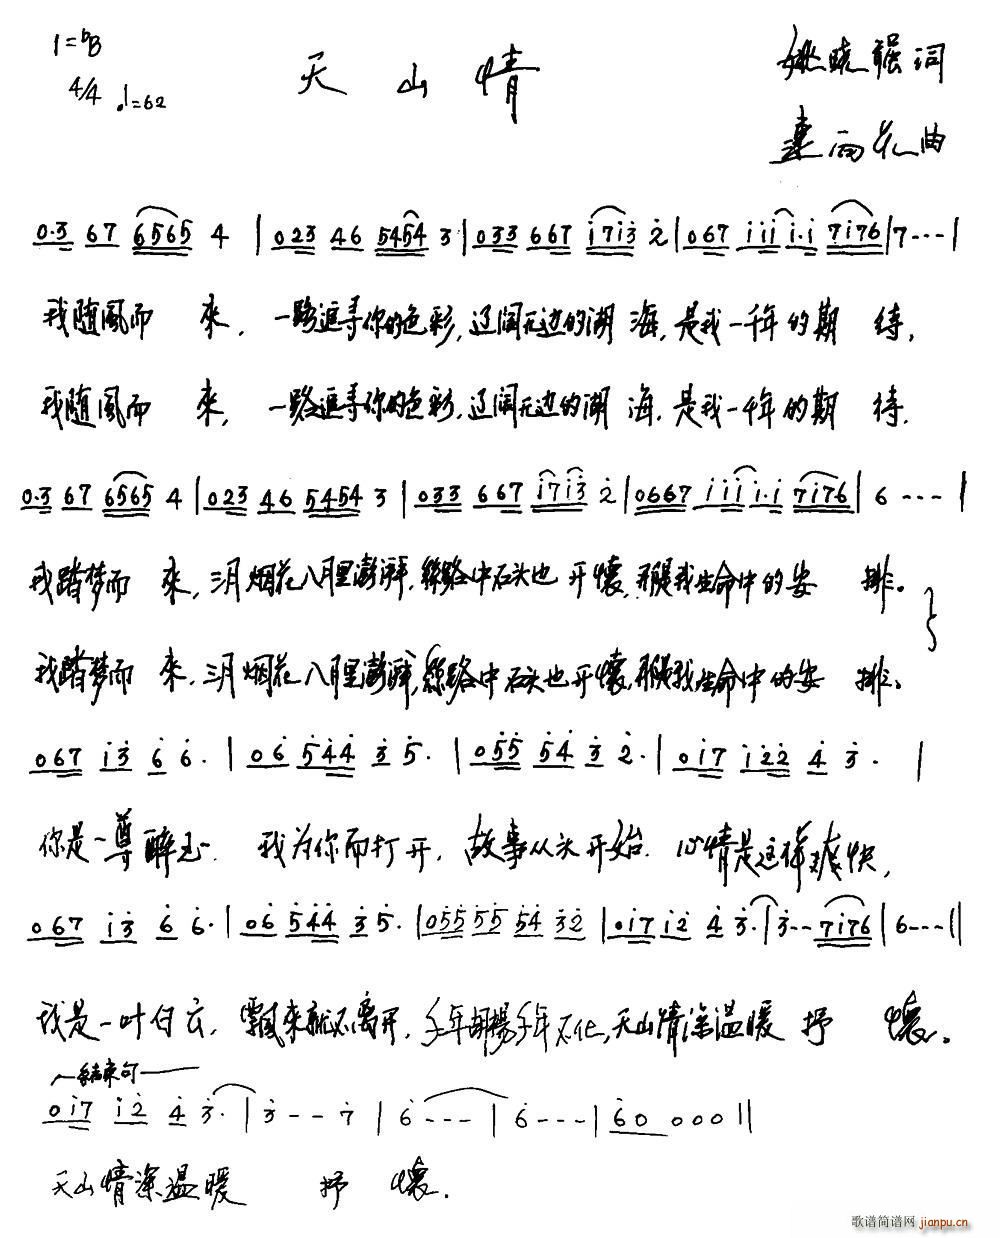 1=bB
天山情
姚晓强词
4/4 ♩=62
雨花曲
0·3 67 6565 4 | 023 46 5454 3 | 033 667 i7i3 2 | 067 iii i·i 7i76 | 7--- |
我随風而 來, 一路追寻你的色彩, 辽阔无边的湖 海, 是我一千年的期 待,
我随風而 來, 一路追寻你的色彩, 辽阔无边的湖 海, 是我一千年的期 待.
0·3 67 6565 4 | 023 46 5454 3 | 033 667 i7i3 2 | 0667 iii i·i 7i76 | 6 --- |
我踏梦而 來, 三月烟花八月里澎湃, 丝路中石头也 开懷, 那是我生命中的安 排。
我踏梦而 來, 三月烟花八月里澎湃, 丝路中石头也开懷, 那是我生命中的安 排。
067 i3 6 6· | 06 544 3 5· | 055 54 3 2· | 0i7 i22 4 3· |
你是一尊醉玉. 我为你而打开, 故事从头开始. 心情是这样爽快,
067 i3 6 6· | 06 544 3 5· | 055 55 54 32 | 0i7 i2 4 3· | 3-- 7i76 | 6--- ||
我是一叶白云, 飘来就不离开, 千年胡楊千年不, 天山情深温暖 抒 懷。
结束句
0i7 i2 4 3· | 3 -- 7 | 6 --- | 6 --- | 60 000 ||
天山情深温暖 抒 懷.
歌谱简谱网 jianpu.cn